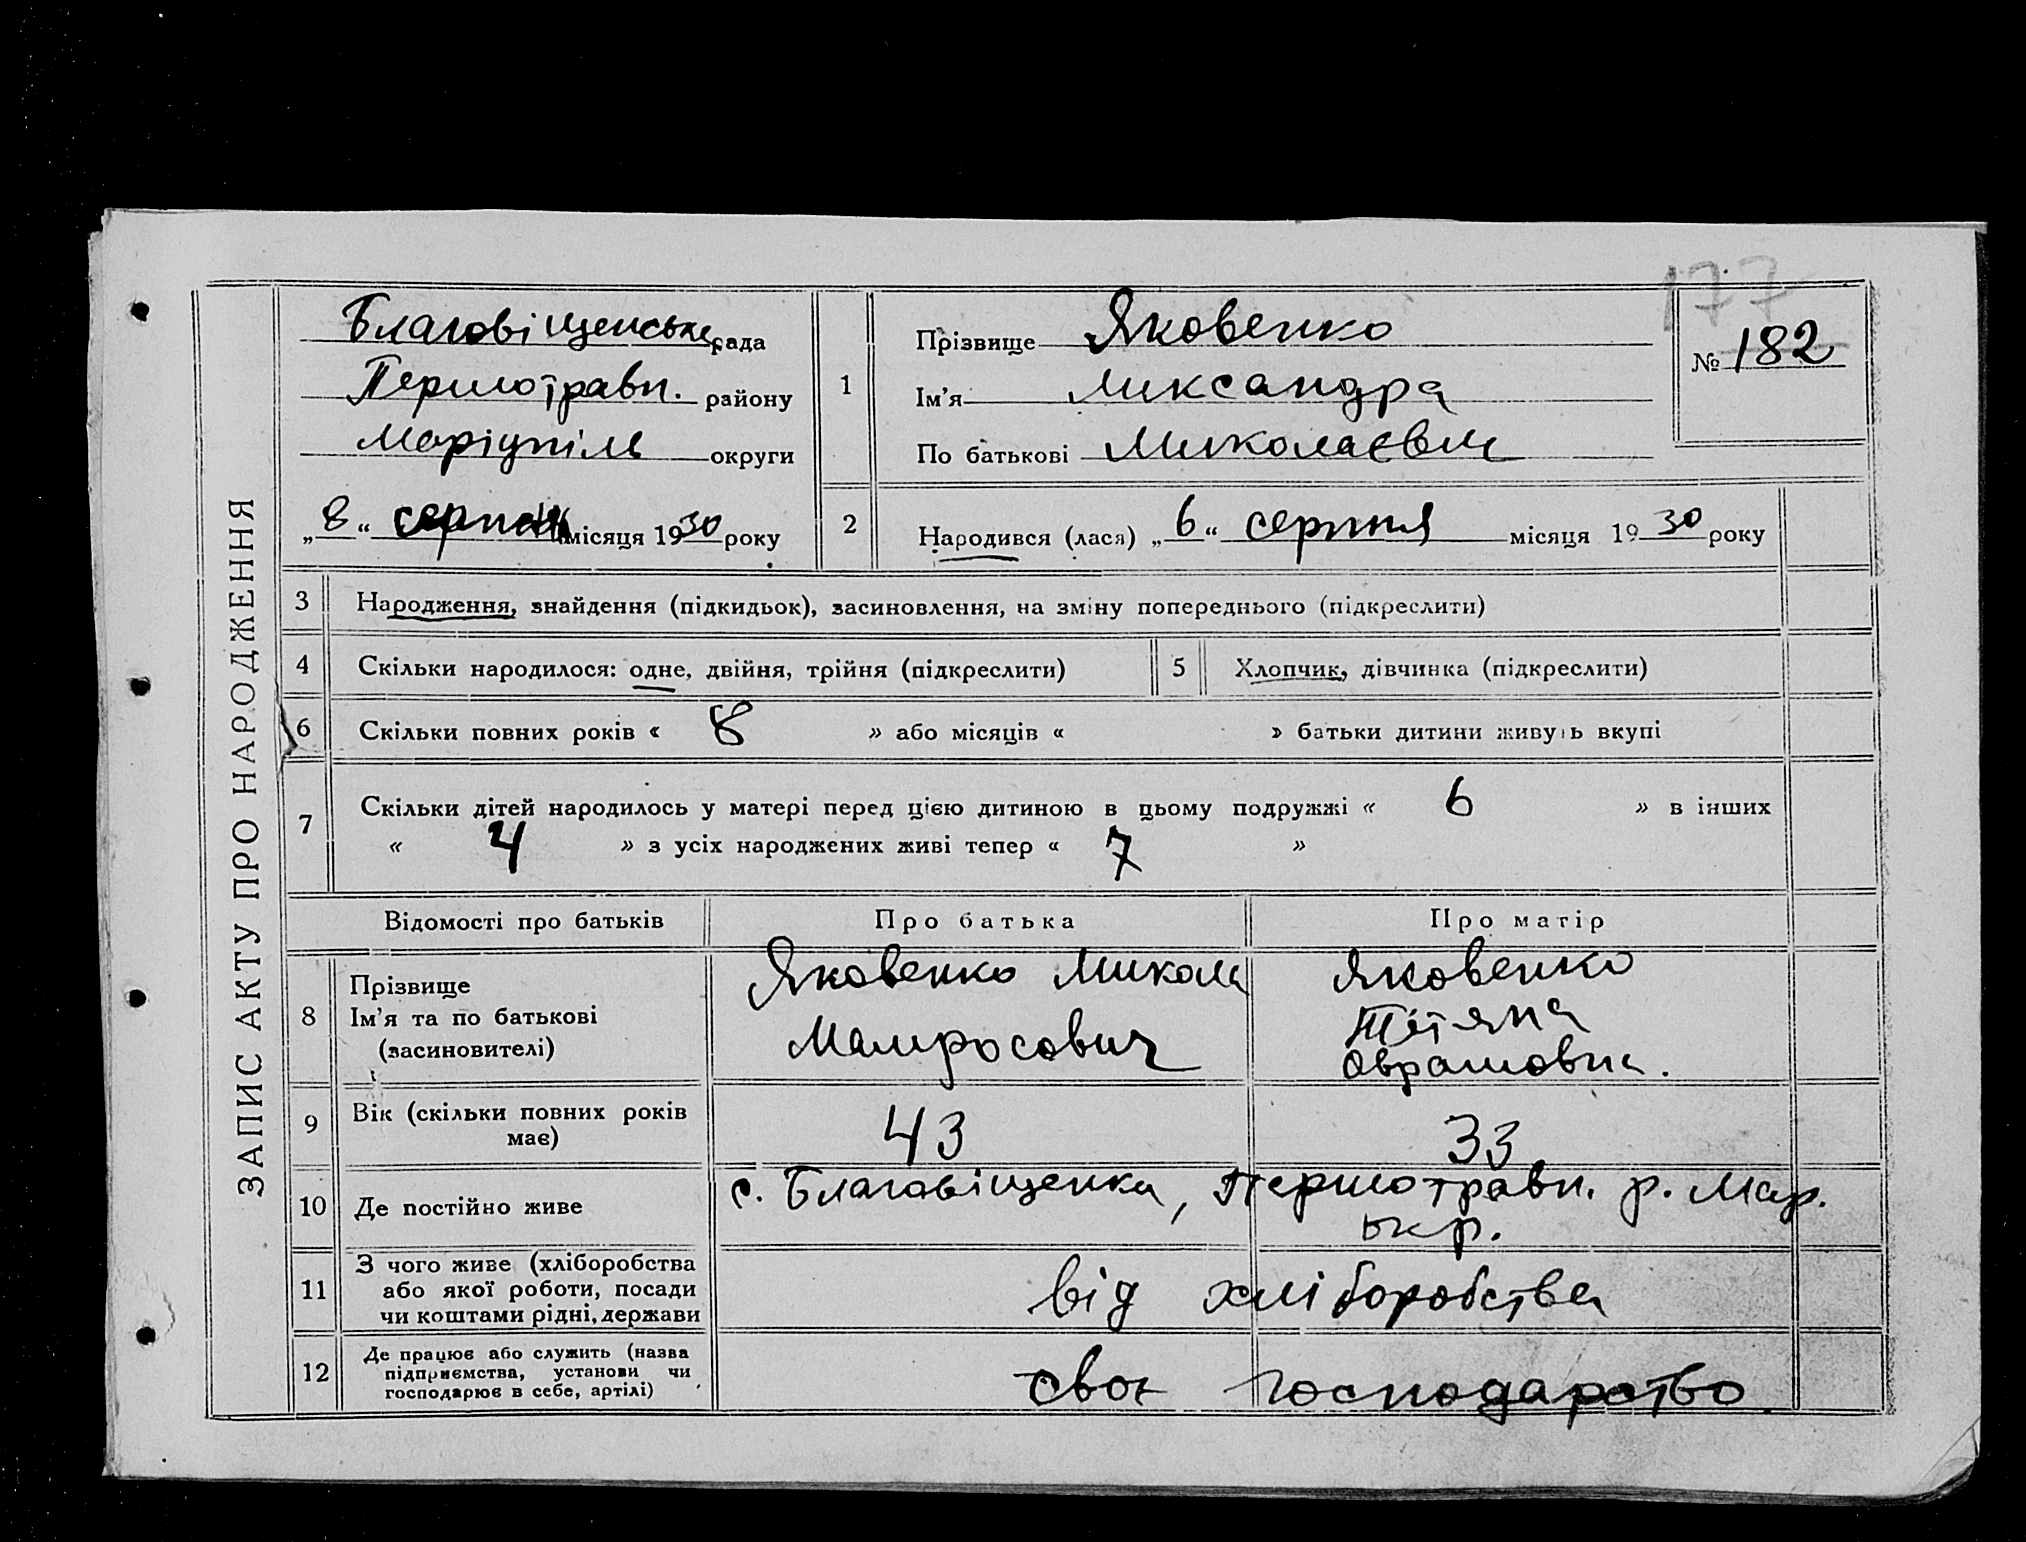 177
ЗАПИС АКТУ ПРО НАРОДЖЕННЯ
Благовіщенська рада
Першотравн. району
Маріупіль округи
„8“ серпня місяця 1930 року
1
Прізвище Яковенко
Ім'я Ликсандра
По батькові Миколаєвич
№ 182
2 Народився (лася) „6“ серпня місяця 1930 року
3 Народження, знайдення (підкидьок), засиновлення, на зміну попереднього (підкреслити)
4 Скільки народилося: одне, двійня, трійня (підкреслити)
5 Хлопчик, дівчинка (підкреслити)
6 Скільки повних років « 8 » або місяців « » батьки дитини живуть вкупі
7 Скільки дітей народилось у матері перед цією дитиною в цьому подружжі « 6 » в інших
« 4 » з усіх народжених живі тепер « 7 »
Відомості про батьків Про батька Про матір
8 Прізвище
Ім'я та по батькові
(засиновителі)
Яковенко Микола
Амвросович
Яковенко
Тетяна
Оврамовна.
9 Вік (скільки повних років
має)
43 33
10 Де постійно живе
с. Благовіщенка, Першотравн. р. Мар.
окр.
11 З чого живе (хліборобства
або якої роботи, посади
чи коштами рідні, держави
від хліборобства
12 Де працює або служить (назва
підприємства, установи чи
господарює в себе, артілі)
своє господарство